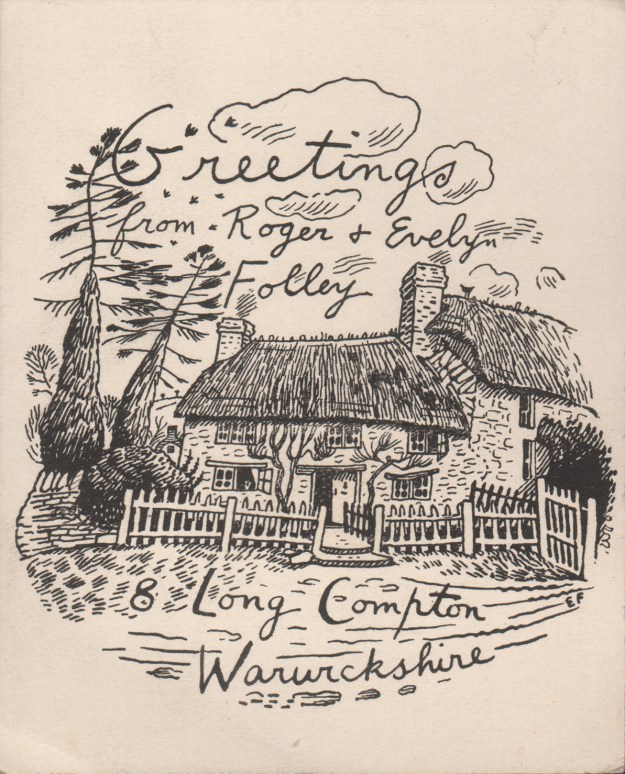 Greetings
from Roger & Evelyn
Folley
8 Long Compton
Warwickshire
EF